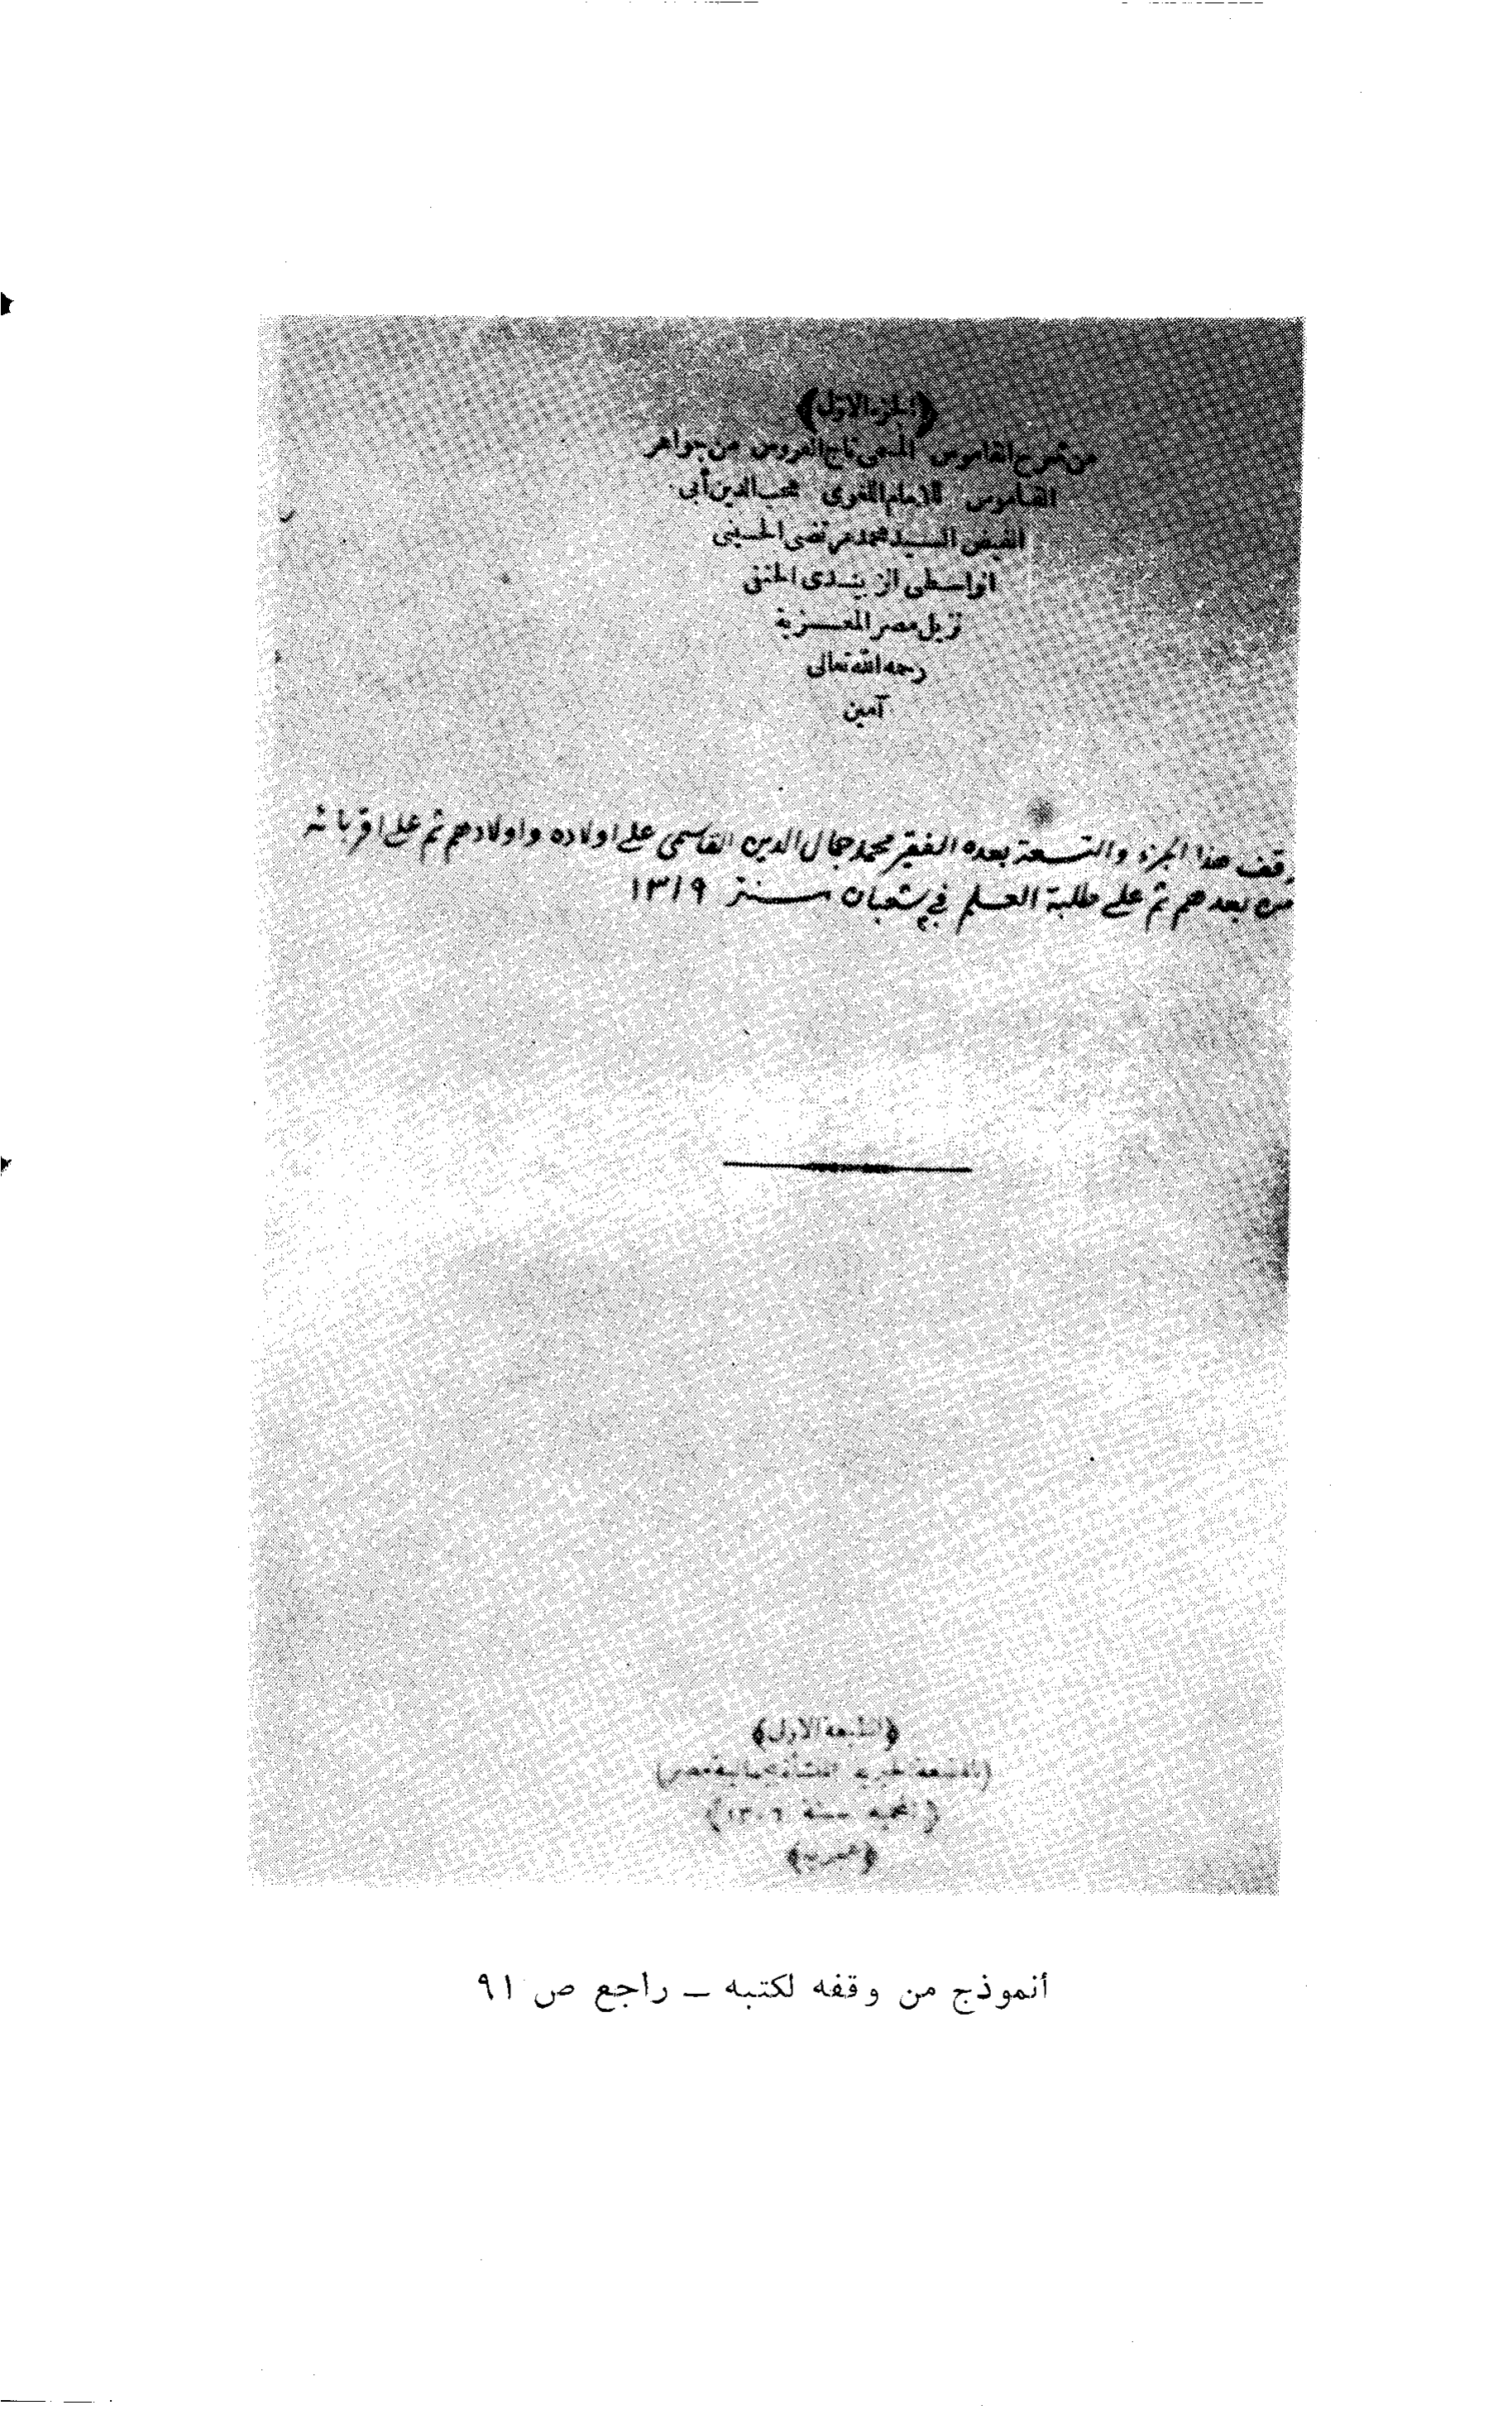 ﴿الجزء الاول﴾
من شرح القاموس المسمى تاج العروس من جواهر
القاموس للامام اللغوى محب الدين أبى
الفيض السيد محمد مرتضى الحسينى
الواسطى الزبيدى الحنفى
نزيل مصر المعزية
رحمه الله تعالى
آمين
وقف هذا الجزء والتسعة بعده الفقير محمد جمال الدين القاسمى على اولاده واولادهم ثم على اقربائه
من بعدهم ثم على طلبة العلم فى شعبان سنة ١٣١٩
﴿الطبعة الاولى﴾
(بالمطبعة الخيرية المنشأة بجمالية مصر)
(المحمية سنة ١٣٠٦)
﴿هجرية﴾
أنموذج من وقفه لكتبه – راجع ص ٩١